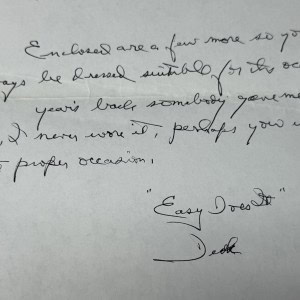 Enclosed are a few more so yo
ays be dressed suitibl for this occ
year's back somebody gave me
, I never wore it, perhaps you w
proper occasion.
"Easy Does It"
Dick